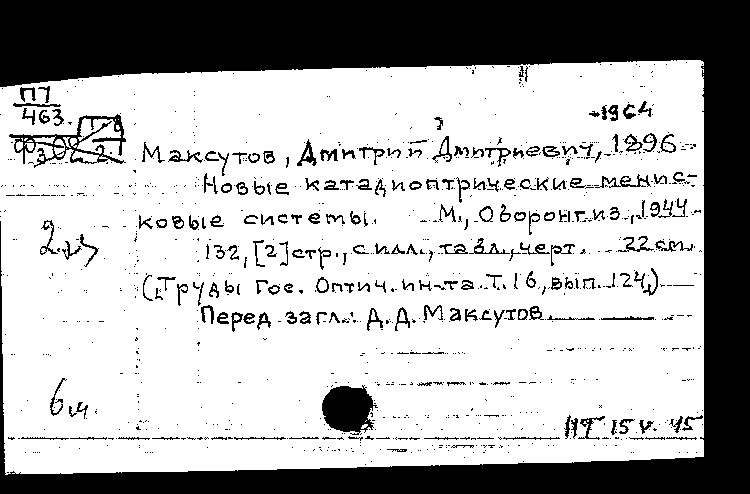 П7
463.
-1964
Максутов, Дмитрий Дмитриевич, 1896-
Новые катадиоптрические менис-
ковые системы. М., Оборонгиз, 1944.
132, [2] стр., с илл., табл., черт. 22 см.
(Труды Гос. Оптич. ин-та. Т. 16, вып. 124)
Перед загл.: Д. Д. Максутов.
15 V. 45